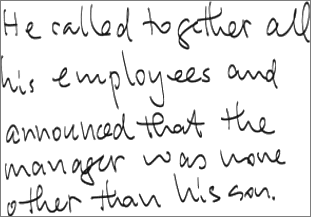 He called together all
his employees and
announced that the
manager was none
other than his son.